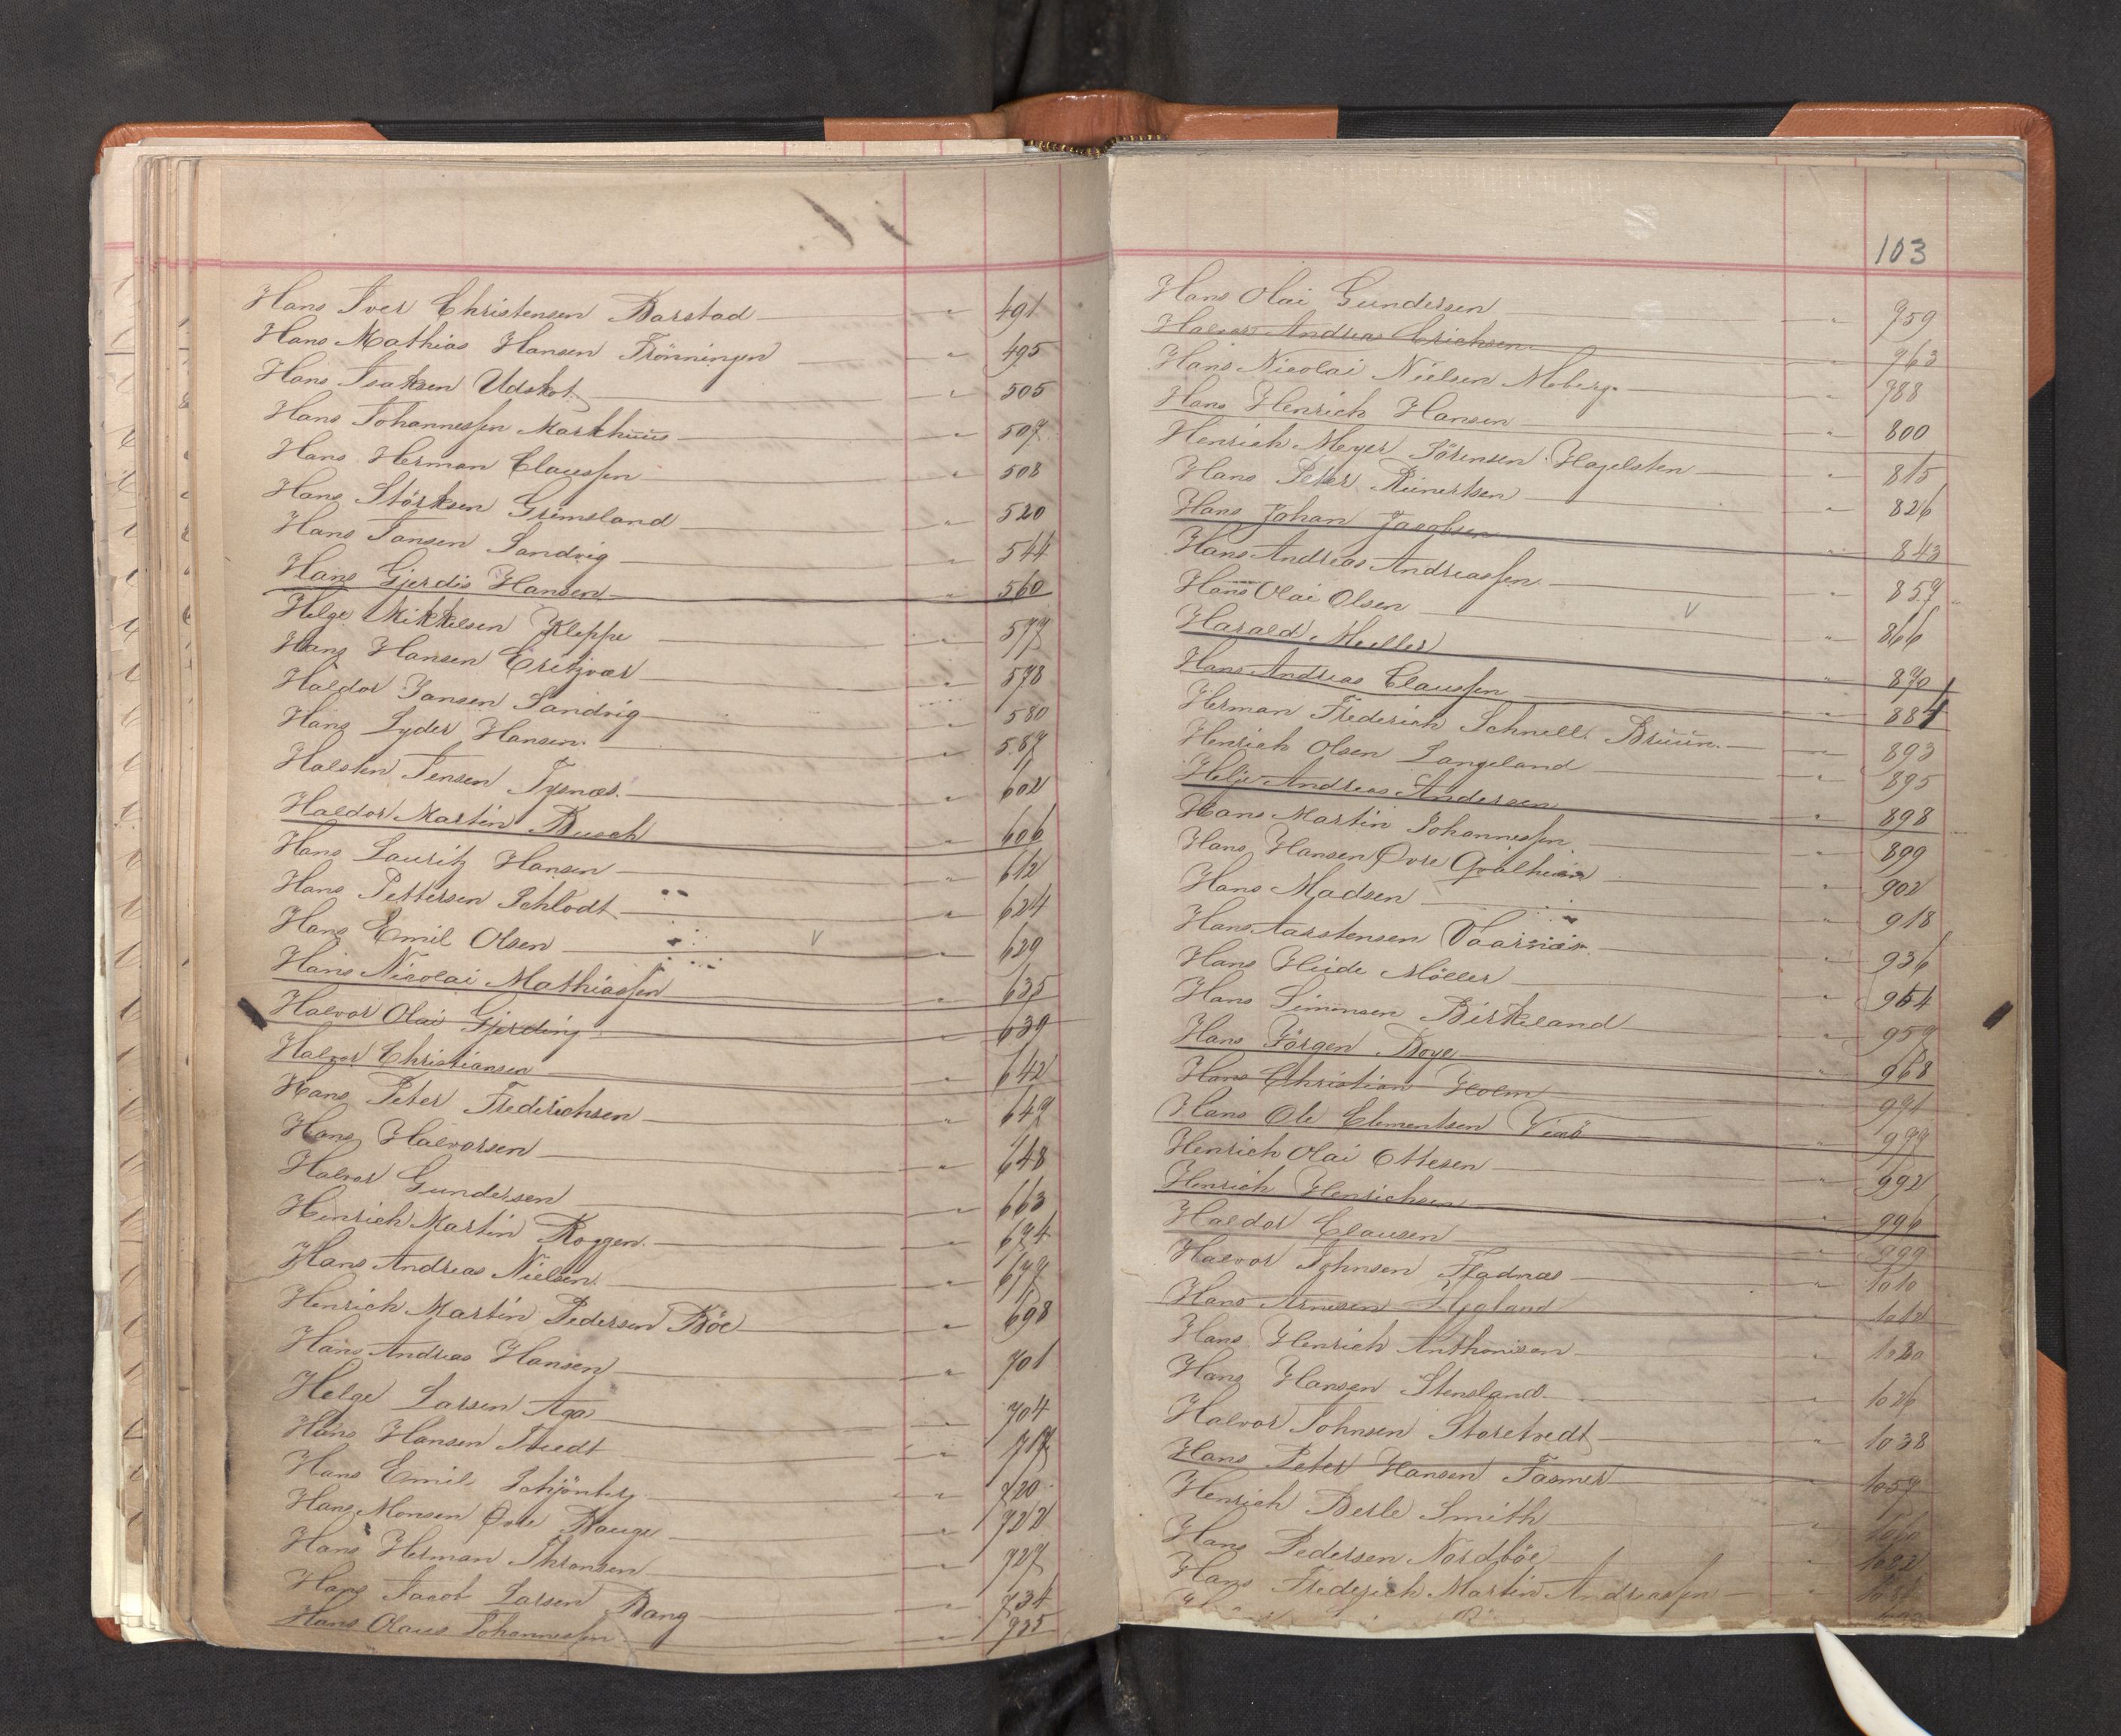 Hans Iver Christensen Barstad — " 491
Hans Mathias Hansen Frönningen " 495
Hans Isaksen Udskot — " 505
Hans Johannessen Markhuus — " 507
Hans Herman Claussen " 508
Hans Störksen Grimsland " 520
Hans Jansen Sandvig — " 544
Hans Gjerdis Hansen — " 560
Helge Mikkelsen Kleppe — " 577
Hans Hansen — " 578
Haldor Jansen Sandvig — " 580
Hans Lyder Hansen. — " 587
Halsten Jensen Tysnæs. — " 602
Haldor Martin Busch " 606
Hans Lauritz Hansen — " 612
Hans Pettersen Schlodt — " 624
Hans Emil Olsen — V " 629
Hans Nicolai Mathiassen " 635
Halvor Olai Gjerding " 639
Halvor Christiansen " 642
Hans Peter Frederichsen — " 647
Hans Halvorsen — " 648
Halvor Gundersen " 663
Henrich Martin Roggen. — " 674
Hans Andreas Nielsen. — " 677
Henrich Martin Pedersen Böe — " 698
Hans Andreas Hansen — " 701
Helge Larsen Aga — " 704
Hans Hansen Tvedt " 717
Hans Emil Schjönberg " 720
Hans Monsen Øvre Bauge — " 722
Hans Herman Thronsen " 727
Hans Jacob Larsen Bang — " 734
Hans Olaus Johannessen — " 735
103
Hans Olai Gundersen — " 759
Halvor Andreas Erichsen " 763
Hans Nicolai Nielsen Moberg. — " 788
Hans Henrich Hansen — " 800
Henrich Meyer Sörensen Hagelsten — " 815
Hans Peter Reinertsen — " 826
Hans Johan Jacobsen " 843
Hans Andreas Andreassen. — " 857
Hans Olai Olsen — V " 866
Harald Müller " 870
Hans Andreas Claussen — " 884
Herman Frederich Schnell Bruun. — " 893
Henrich Olsen Langeland — " 895
Helje Andreas Andersen " 898
Hans Martin Johannessen. — " 899
Hans Hansen Øvre — " 902
Hans Madsen — " 918
Hans — " 936
Hans Heide Möller — " 954
Hans Simonsen Birkeland — " 959
Hans Jörgen Boye — " 968
Hans Christian Holm " 971
Hans Ole Clementsen " 977
Henrich Olai Ottesen — " 992
Henrich Henrichsen " 996
Haldor Clausen " 999
Halvor Johnsen Fladnæs — " 1010
Hans Arnesen " 1012
Hans Henrich Anthonisen — " 1020
Hans Hansen Stensland — " 1026
Halvor Johnsen Storetvedt — " 1038
Hans Peter Hansen Fasmer " 1057
Henrich Berle Smith " 1060
Hans Pedersen Nordböe — "
Hans Frederich Martin Andreassen "